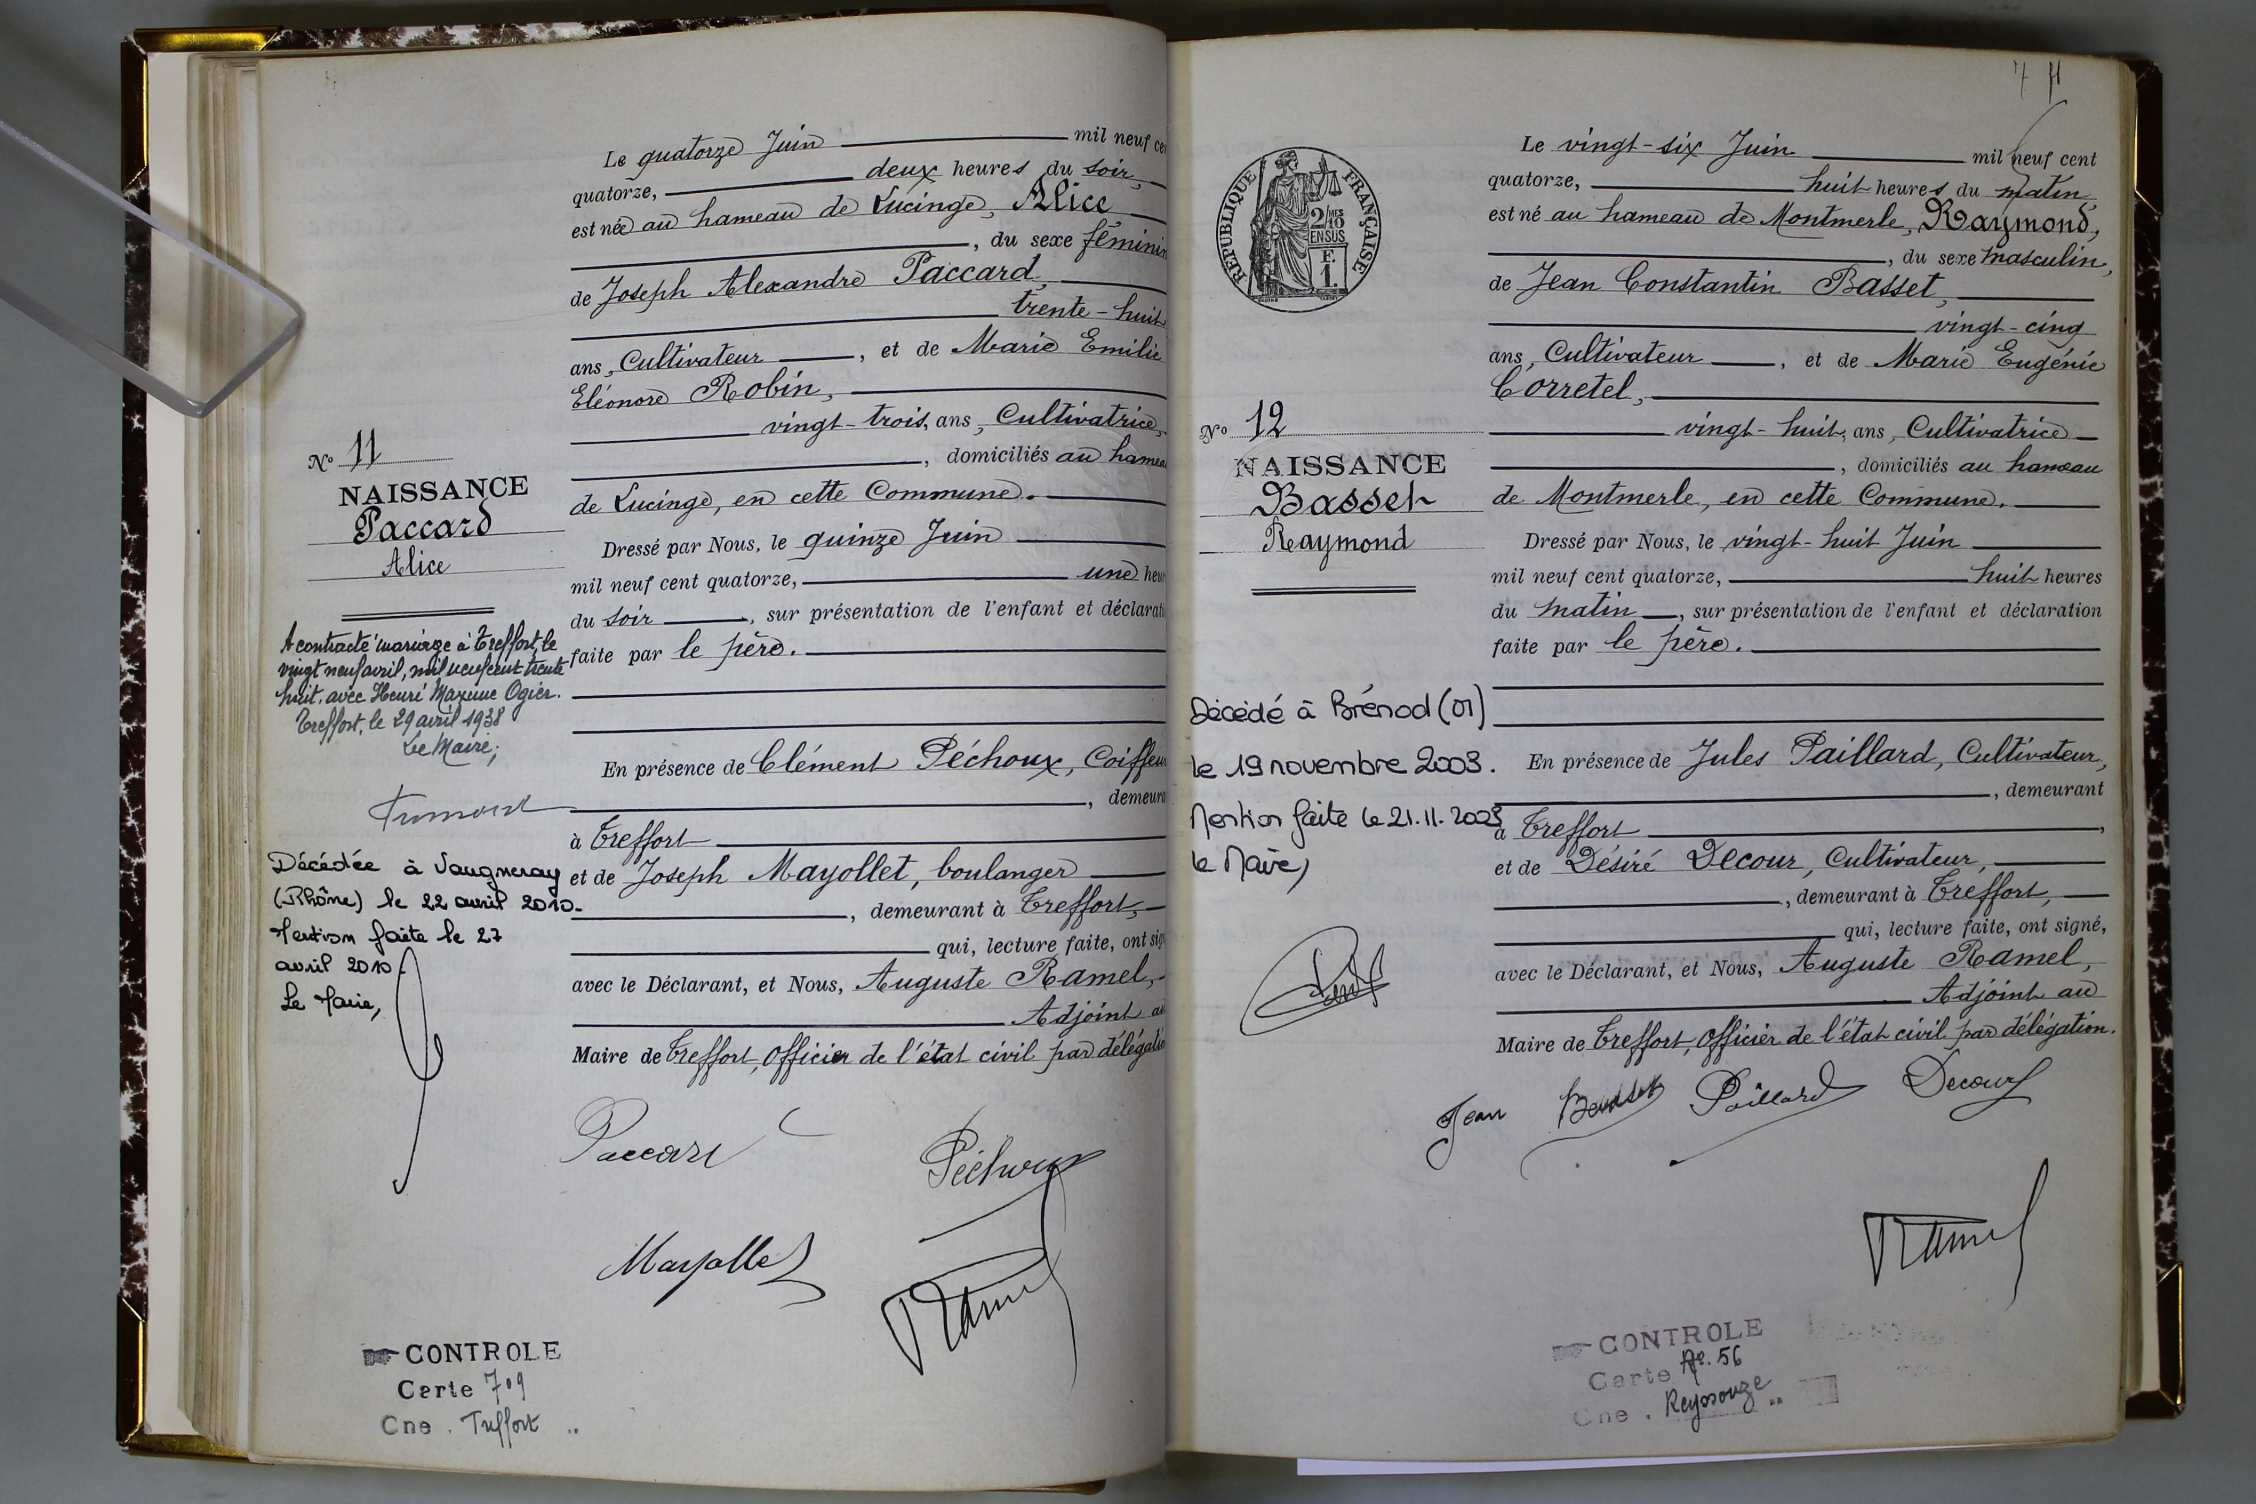 Le quatorze Juin mil neuf ce
quatorze, deux heures du soir,
est née au hameau de Lucinge, Alice
, du sexe féminin
de Joseph Alexandre Paccard,
trente-huit
ans, Cultivateur, et de Marie Emilie
Eléonore Robin,
vingt-trois, ans, Cultivatrice,
, domiciliés au hamea
de Lucinge, en cette Commune.
Dressé par Nous, le quinze Juin
mil neuf cent quatorze, une heu
du soir, sur présentation de l'enfant et déclarati
faite par le père.
En présence de Clément Péchoux, Coiffeu
, demeura
à Treffort
et de Joseph Mayollet, boulanger
, demeurant à Treffort,
qui, lecture faite, ont sig
avec le Déclarant, et Nous, Auguste Ramel,
Adjoint au
Maire de Treffort, Officier de l'état civil par délégatio
Paccard
Péchoux
Mayollet
Ramel
N° 11
NAISSANCE
Paccard
Alice
A contracté mariage à Treffort, le
vingt neuf avril, mil neuf cent trente
huit, avec Henri Maxime Ogier.
Treffort, le 29 avril 1938
Le Maire,
Décédée à Vaugneray
(Rhône) le 22 avril 2010.
Mention faite le 27
avril 2010.
Le Maire,
CONTROLE
Carte 709
Cne. Treffort
7
Le vingt-six Juin mil neuf cent
quatorze, huit heures du matin,
est né au hameau de Montmerle, Raymond,
, du sexe masculin,
de Jean Constantin Basset,
vingt-cinq
ans, Cultivateur, et de Marie Eugénie
Corretel,
vingt-huit, ans, Cultivatrice
, domiciliés au hameau
de Montmerle, en cette Commune.
Dressé par Nous, le vingt-huit Juin
mil neuf cent quatorze, huit heures
du matin, sur présentation de l'enfant et déclaration
faite par le père.
En présence de Jules Paillard, Cultivateur,
, demeurant
à Treffort,
et de Désiré Decour, Cultivateur,
, demeurant à Treffort,
qui, lecture faite, ont signé,
avec le Déclarant, et Nous, Auguste Ramel,
Adjoint au
Maire de Treffort, Officier de l'état civil par délégation.
Jean Basset Paillard Decour
Ramel
REPUBLIQUE FRANÇAISE
2/MES
10
EN SUS
F.
1.
N° 12
NAISSANCE
Basset
Raymond
Décédé à Brénod (01)
le 19 novembre 2003.
Mention faite le 21.11.2003
le Maire,
CONTROLE
Carte N°. 56
Cne. Reyssouze